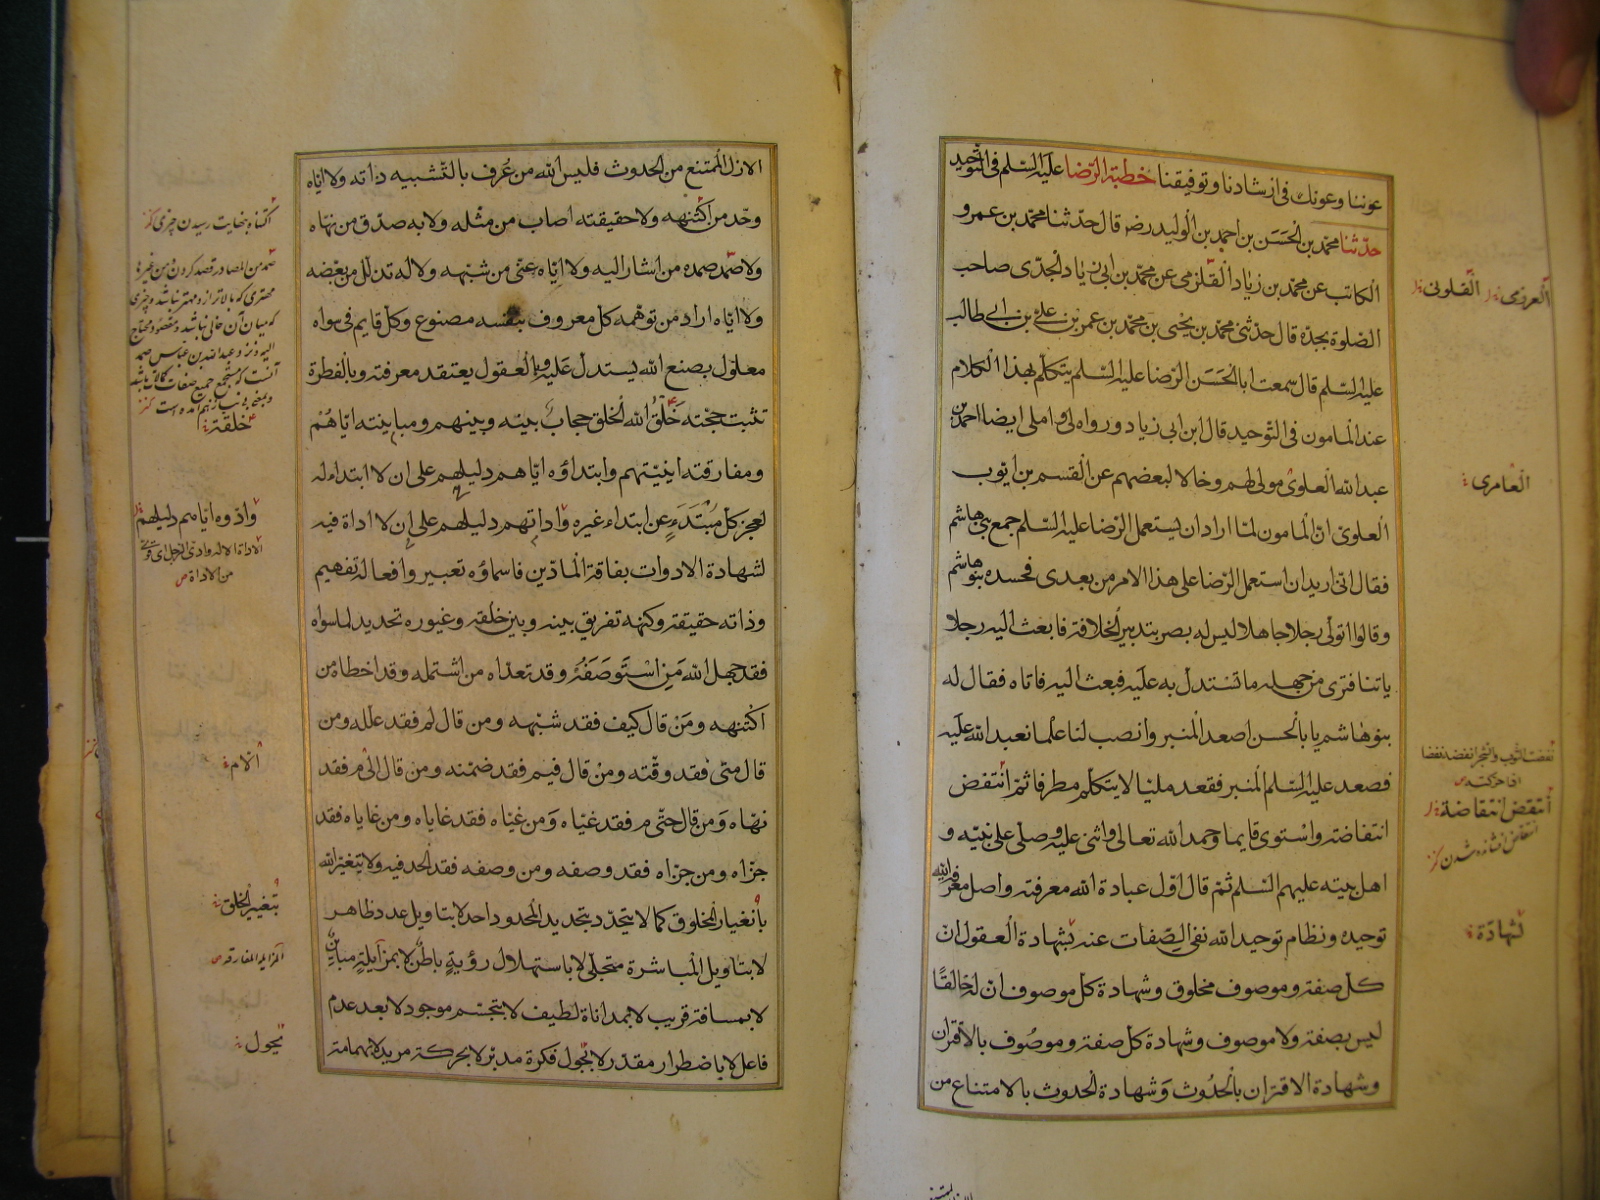 عوننا وعونك فى ارشادنا وتوفيقنا خطبة الرّضا عليه السّلم فى التّوحيد
حدّثنا محمّد بن الحَسَن بن احمد بن الوليد رضه قال حدّثنا محمّد بن عمرو
الكاتب عن محمّد بن زياد القلزمى عن محمّد بن ابى زياد الجدّى صاحب
الصّلوة بجدّة قال حدّثنى محمّد بن يحيى بن محمّد بن عمر بن على بن ابى طالب
عليه السّلم قال سمعت ابا الحَسَن الرّضا عليه السّلم يتكلّم بهذا الكلام
عند المامون فى التّوحيد قال ابن ابى زياد ورواه لى واملى ايضا احمد بن
عبد الله العلوىّ مولى لهم وخالا لبعضهم عن القسم بن ايّوب
العلوىّ انّ المامون لمّا اراد ان يستعمل الرّضا عليه السّلم جمع بنى هاشم
فقال انّى اريد ان استعمل الرّضا على هذا الامر من بعدى فحسده بنو هاشم
وقالوا اتولّى رجلا جاهلا ليس له بصر بتدبير الخلافة فابعث اليه رجلا
ياتنا فترى من جهله ما تستدلّ به عليه فبعث اليه فاتاه فقال له
بنو هاشم يا با الحسن اصعد المنبر وانصب لنا علما نعبد الله عليه
فصعد عليه السّلم المنبر فقعد مليّا لا يتكلّم مطرقا ثمّ انتفض
انتفاضة واستوى قايما وحمد الله تعالى واثنى عليه وصلّى على نبيّه و
اهل بيته عليهم السّلم ثمّ قال اوّل عبادة الله معرفته واصل معرفة الله
توحيده ونظام توحيد الله نفى الصّفات عنه بشهادة العقول انّ
كلّ صفة وموصوف مخلوق وشهادة كلّ موصوف انّ له خالقًا
ليس بصفة ولا موصوف وشهادة كلّ صفة وموصُوف بالاقتران
وشهادة الاقتران بالحُدُوث وَشهادة الحدوث بالامتناع من
العرزمى القلونى
العامرى
نفضت الثوب والشجر انفضه نفضا
اذا حركته ص
انتقض انتقاضة
لشهادة
الازل الممتنع من الحدوث فليس الله من عُرف بالتّشبيه ذاته ولا ايّاه
وحّد من اكتنهه ولا حقيقته اصاب من مثّله ولا به صدّق من نهّاه
ولا صَمَد صمده من اشار اليه ولا ايّاه عنى من شبّهه ولا له تذلّل من بعّضه
ولا ايّاه اراد من توهّمه كلّ معروف بنفسه مصنوع وكلّ قايم فى سواه
معلول بصنع الله يستدلّ عليه وبالعقول يعتقد معرفته وبالفطرة
تثبت حجّته خَلْقُ الله الخلق حجاب بينه وبينهم ومباينته ايّاهُمْ
ومفارقته اينيّتهم وابتداؤه ايّاهم دليلهم على ان لا ابتداء له
لعجز كلّ مُبْتَدَءٍ عن ابتداء غيره وادَاتهم دليلهم على ان لا اداة فيه
لشهادة الادوات بفاقة المادّين فاسماؤه تعبير وافعاله تفهيم
وذاته حقيقة وكنهه تفريق بينه وبين خلقه وغيوره تحديد لما سواه
فقد جهل الله مَن اسْتَوصَفَهُ وقد تعدّاه من اشتمله وقد اخطاه من
اكتنهه ومَنْ قال كيف فقد شبّهه ومن قال لم فقد علّله ومن
قال متى فقد وقّته ومن قال فيم فقد ضمّنه ومن قال الىٰ م فقد
نهّاه وَمن قال حتّى م فقد غيّاه وَمن غيّاه فقد غاياه ومن غاياه فقد
جزّاه ومن جزّاه فقد وصفه ومن وصفه فقد الحد فيه ولا يتغيّر الله
بانغيار المخلوق كما لا يتحدّد بتحديد المحدود احد لا بتاويل عدد ظاهر
لا بتاويل المباشرة متجلّى لا باستهلال رؤيةٍ باطن لا بمزايلةٍ مباين
لا بمسافة قريب لا بمداناة لطيف لا بتجسّم موجود لا بعد عدم
فاعل لا باضطرار مقدّر لا بجول فكرة مدبّر لا بحركة مريد لا بهمامة
اكتناه بنهايت رسيدن چيزى كنز
خلقة
واذوه ايّاهم دليلهم
من الاداة ص
الام
بتغيير الخلق
المزايله المفارقه ص
بحول